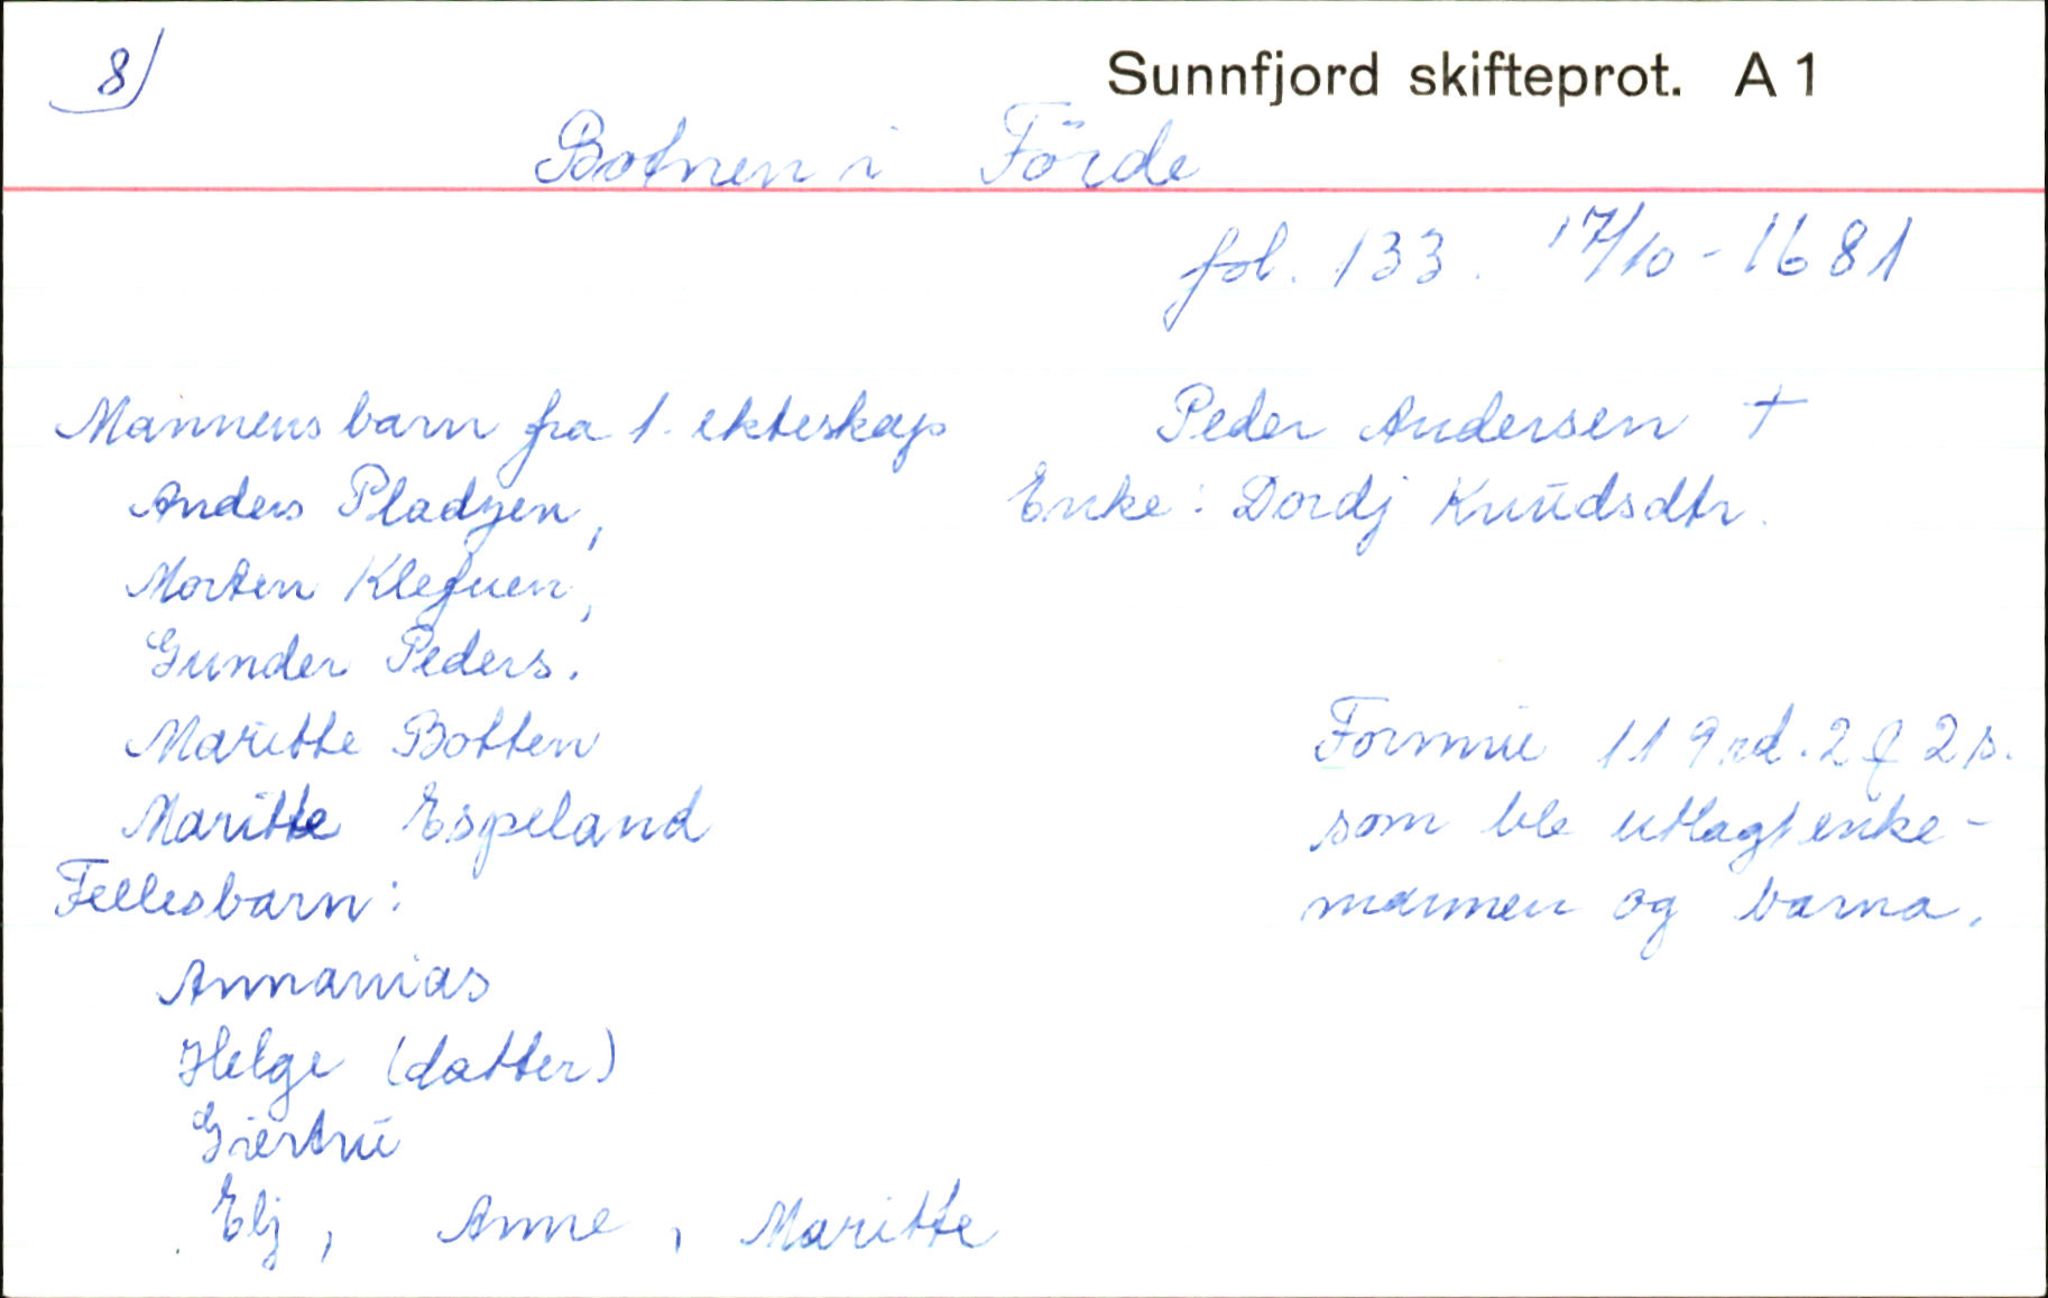 8)
Sunnfjord skifteprot. A 1
Botnen i Förde
fol. 133. 17/10 - 1681
Mannens barn fra 1. ekteskap
Anders Pladzen,
Morten Klefuen,
Gunder Peders.
Maritte Botten
Maritte Espeland
Fellesbarn:
Annanias
Helge (datter)
Giertrü
Elj, Anne, Maritte
Peder Andersen †
Enke: Dordj Knüdsdtr.
Formüe 119 rd. 2 2 s.
som ble utlagt enke-
mannen og barna.